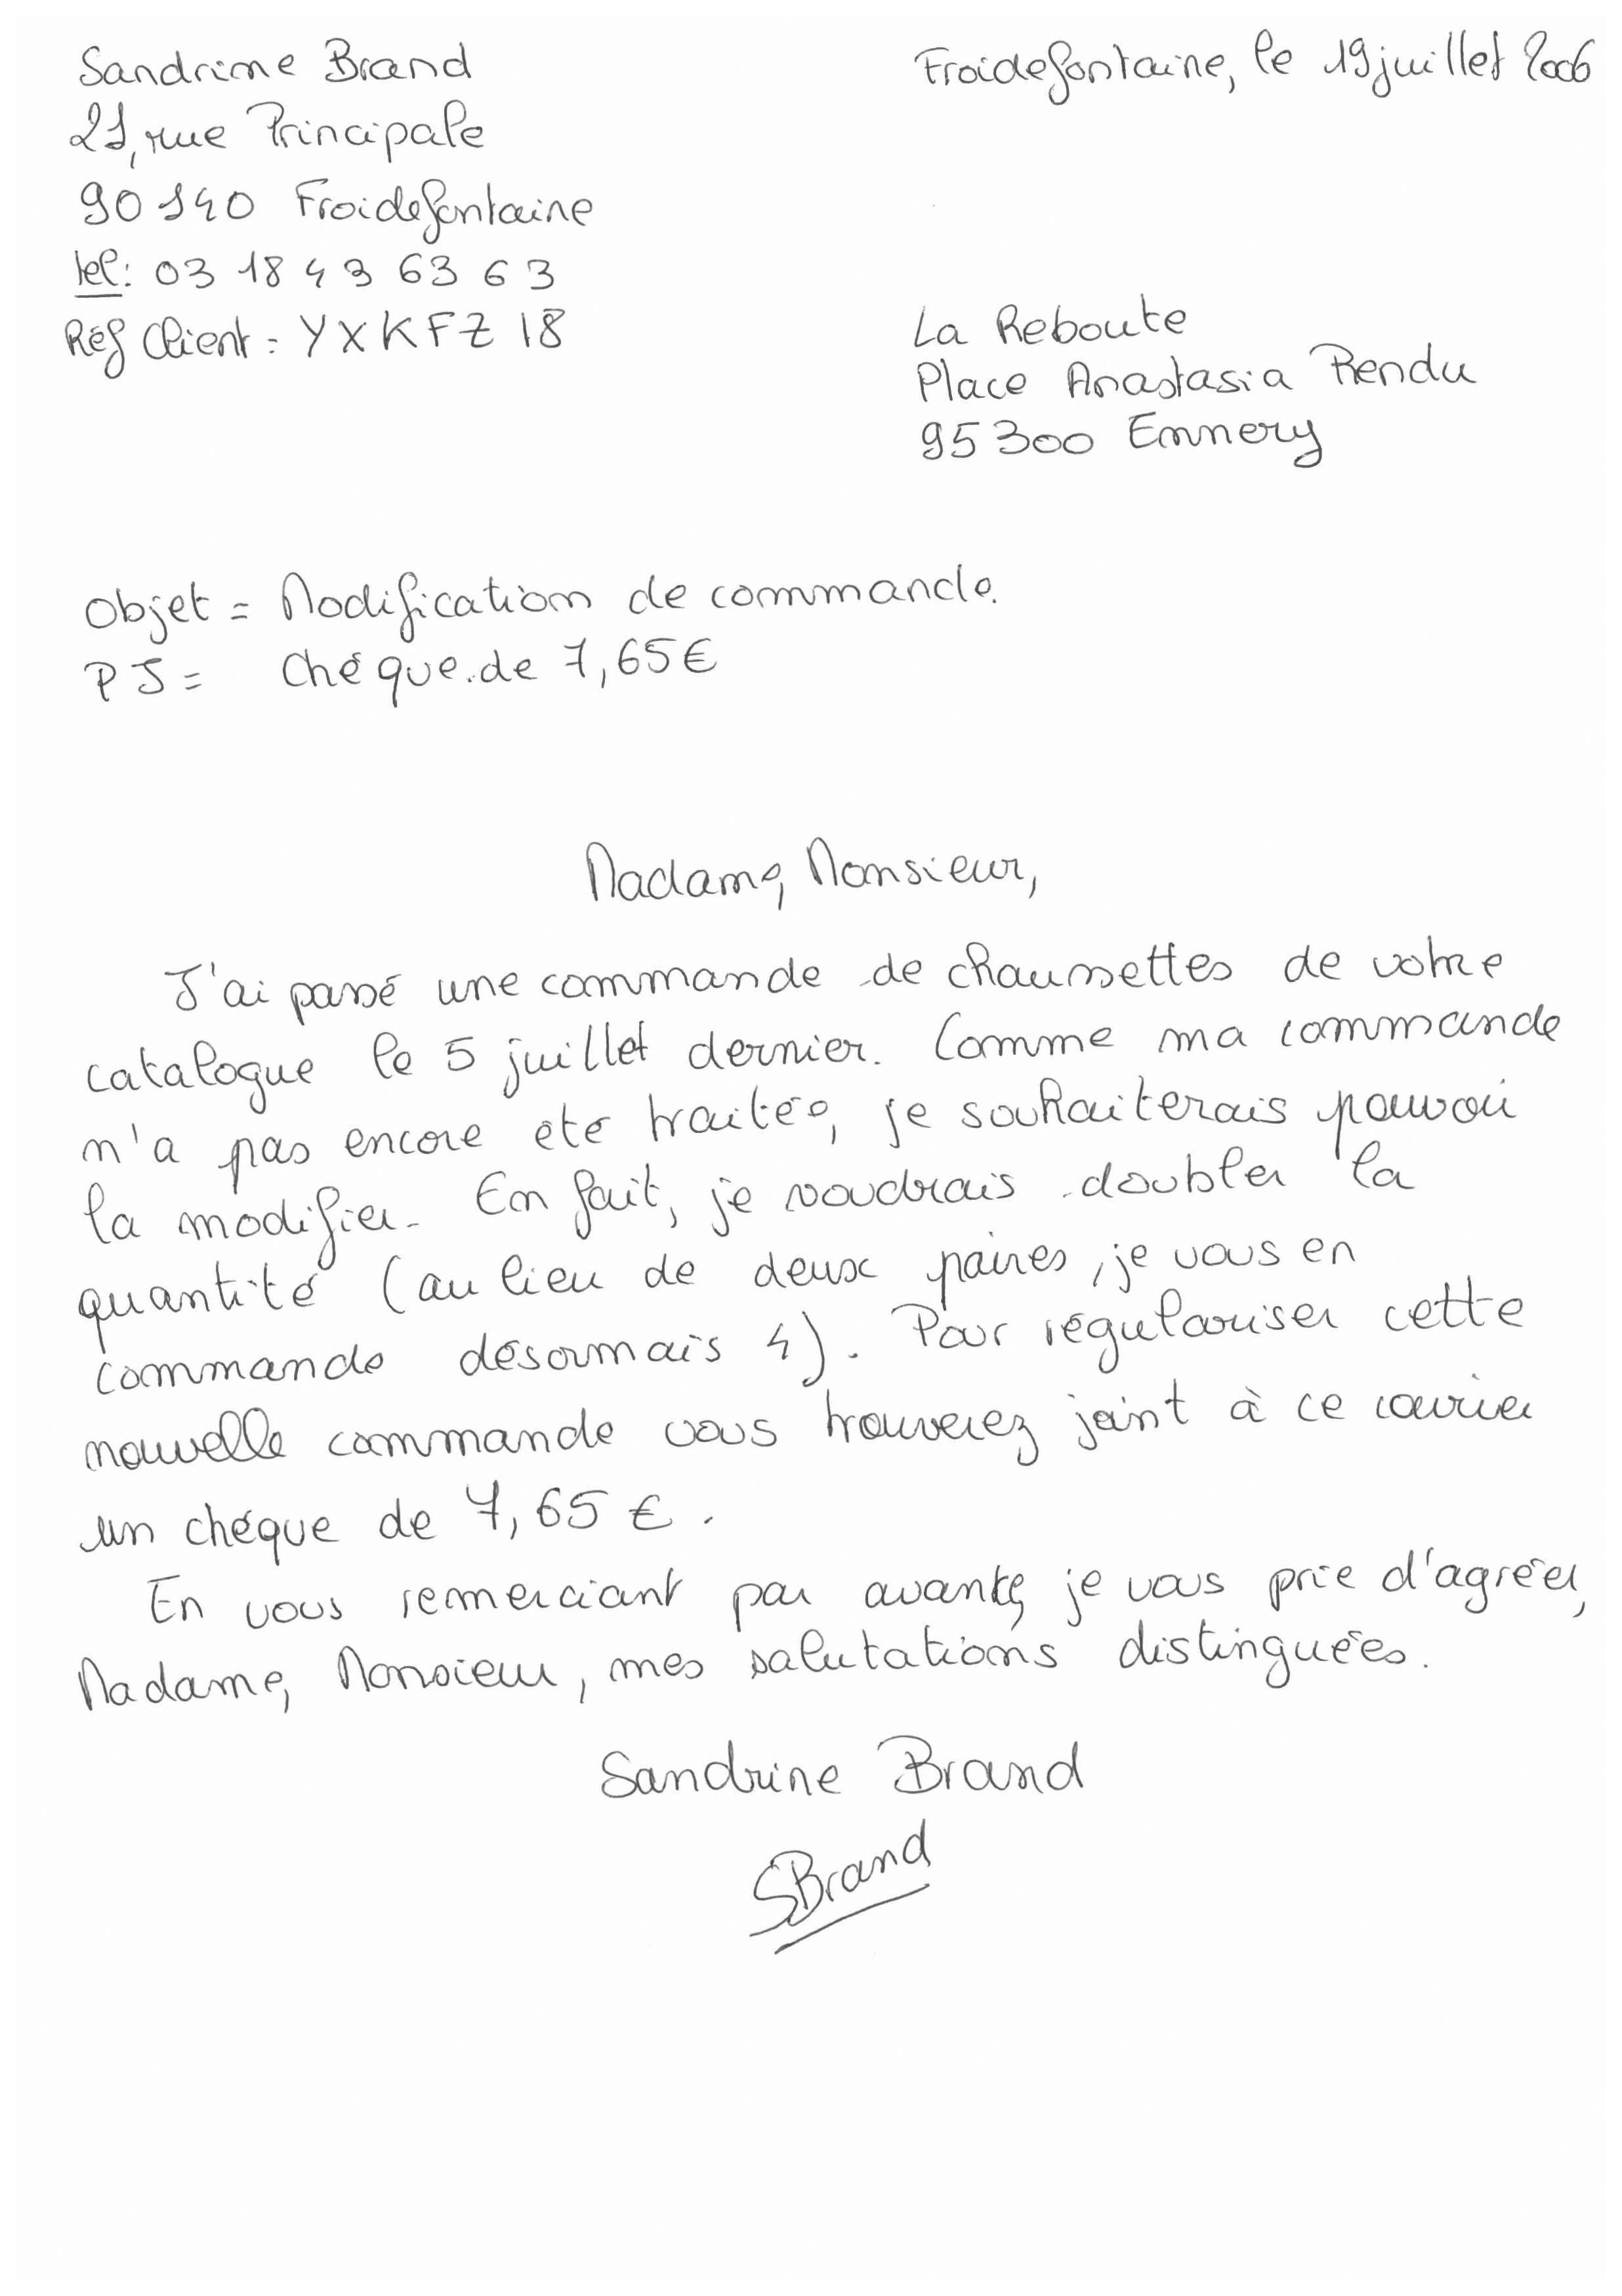 Sandrine Brand
21, rue Principale
90140 Froidefontaine
tel: 03 18 43 63 63
Réf Client = YXKFZ18
Froidefontaine, le 19 juillet 2006
La Reboute
Place Anastasia Rendu
95300 Ennery
Objet = Modification de commande.
PJ = Chéque de 7,65€
Madame, Monsieur,
J'ai passé une commande de chaussettes de votre
catalogue le 5 juillet dernier. Comme ma commande
n'a pas encore été traitée, je souhaiterais pouvoir
la modifier. En fait, je voudrais doubler la
quantité (au lieu de deux paires, je vous en
commande désormais 4). Pour régulariser cette
nouvelle commande vous trouverez joint à ce courier
un chéque de 7,65 €.
En vous remerciant par avance, je vous prie d'agréer,
Madame, Monsieur, mes salutations distinguées.
Sandrine Brand
SBrand